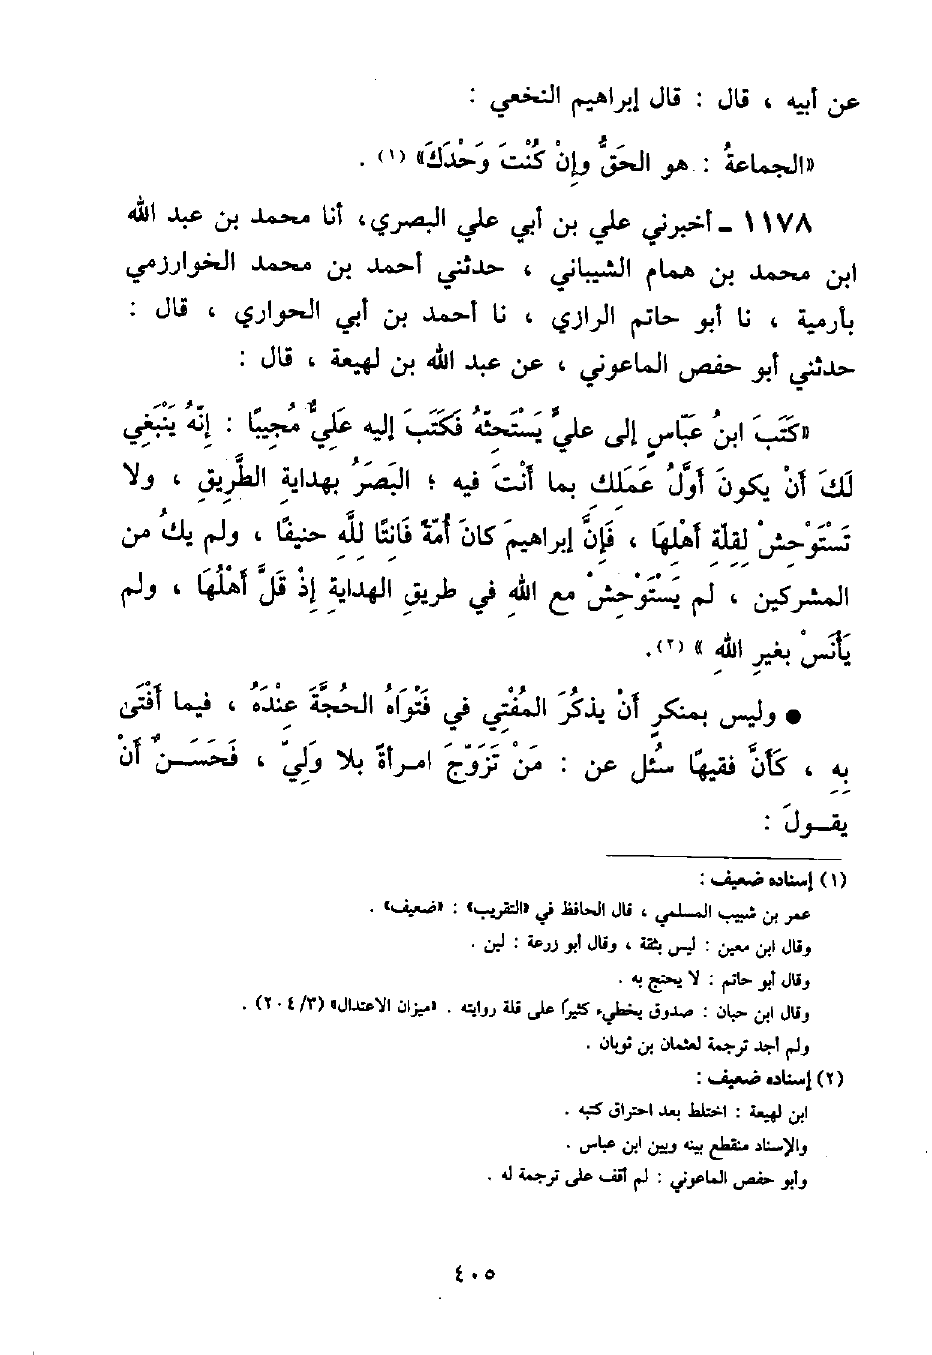 عن أبيه ، قال : قال إبراهيم النخعي :
«الجماعةُ : هو الحَقُّ وإنْ كُنْتَ وَحْدَكَ» (١) .
١١٧٨ ـ أخبرني علي بن أبي علي البصري، أنا محمد بن عبد الله
ابن محمد بن همام الشيباني ، حدثني أحمد بن محمد الخوارزمي
بأرمية ، نا أبو حاتم الرازي ، نا أحمد بن أبي الحواري ، قال :
حدثني أبو حفص الماعوني ، عن عبد الله بن لهيعة ، قال :
«كَتَبَ ابنُ عَبّاسٍ إلى عليٍّ يَسْتَحِثّهُ فكَتَبَ إليه عَلِيٌّ مُجِيبًا : إنّهُ يَنْبَغِي
لَكَ أنْ يكونَ أوَّلُ عَمَلِكِ بما أنْتَ فيه ؛ البَصَرُ بهدايةِ الطَّريقِ ، ولا
تَسْتَوْحِشْ لِقلّةِ أهْلِهَا ، فَإنَّ إبراهيمَ كانَ أُمّةً قَانتًا للَّهِ حنيفًا ، ولم يكُ من
المشركين ، لم يَسْتَوْحِشْ مع اللهِ في طريقِ الهدايةِ إذْ قَلَّ أهْلُهَا ، ولم
يَأنَسْ بغيرِ اللهِ » (٢).
● وليس بمنكرٍ أنْ يذكُرَ المُفْتِي في فَتْوَاهُ الحُجَّةَ عِنْدَهُ ، فيما أفْتَىٰ
بِهِ ، كَأنَّ فقيهًا سُئل عن : مَنْ تَزَوّجَ امرأةً بلا وَليّ ، فَحَسَـنٌ أنْ
يقـولَ :
(١) إسناده ضعيف :
عمر بن شبيب المسلمي ، قال الحافظ في «التقريب» : «ضعيف» .
وقال ابن معين : ليس بثقة ، وقال أبو زرعة : لين .
وقال أبو حاتم : لا يحتج به .
وقال ابن حبان : صدوق يخطيء كثيرًا على قلة روايته . «ميزان الاعتدال» (٣/ ٢٠٤) .
ولم أجد ترجمة لعثمان بن ثوبان .
(٢) إسناده ضعيف :
ابن لهيعة : اختلط بعد احتراق كتبه .
والإسناد منقطع بينه وبين ابن عباس .
وأبو حفص الماعوني : لم أقف على ترجمة له .
٤٠٥